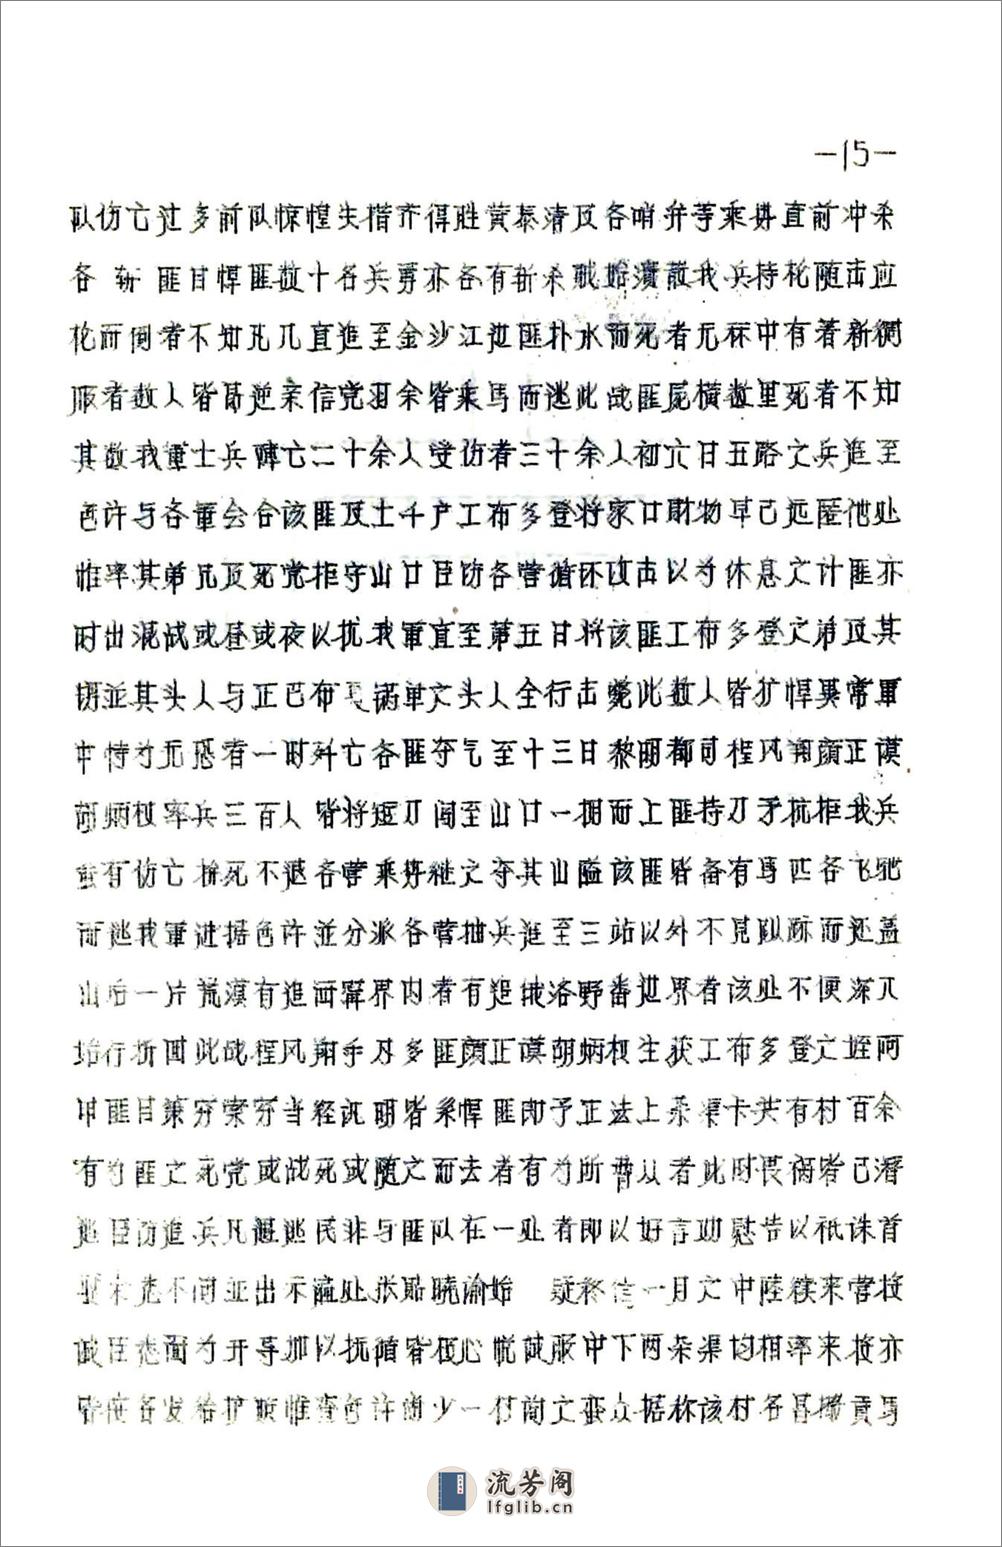 —15—
队伤亡过多前队惊惶失措齐得胜黄泰清及各哨弁等乘势直前冲杀
各 斩 匪目悍匪数十名兵勇亦各有斩杀贼始溃散我兵持枪随击应
枪而倒者不知凡几直追至金沙江边匪扑水而死者尤众中有着新绸
服者数人皆昌逆亲信党羽余皆乘马而逃此战匪尾横数里死者不知
其数我军士兵阵亡二十余人受伤者三十余人初六日五路之兵追至
色许与各军会合该匪及土千户工布多登将家口财物早已远匿他处
惟率其弟兄及死党拒守山口臣饬各营循环攻击以为休息之计匪亦
时出混战或昼或夜以扰我军直至第五日将该匪工布多登之弟及其
甥並其头人与正巴布 满单之头人全行击毙此数人皆犷悍异常军
中恃为无恐者一时歼亡各匪夺气至十三日黎明都司程风翔颜正谟
胡炳权率兵三百人皆将短刀闯至山口一拥而上匪持刀矛抗拒我兵
虽有伤亡拚死不退各营乘势继之夺其山隘该匪皆备有马匹各飞驰
而逃我军进据色许並分派各营抽兵追至三站以外不见踪而还盖
山后一片荒漠有追西宁界内者有追俄洛野番边界者该处不便深入
始行折回此战程风翔手刃多匪颜正谟胡炳权生获工布多登之姪阿
甲匪目策穷棠穷当经讯明皆系悍匪即予正法上杂渠卡共有村百余
有为匪之死党或战死或随之而去者有为所胁从者此时畏祸皆已潜
逃臣饬追兵凡遇逃民非与匪队在一处者即以好言劝慰告以祇诛首
要余党不问並出示遍处张贴晓谕始 疑终信一月之中陆续来营投
诚臣悉面为开导加以抚循皆倾心悦诚服中下两杂渠均相率来投亦
皆使各发给护照惟查色许尚少一村问之蛮众据称该村名昌挪贡马
流芳阁
lfglib.cn